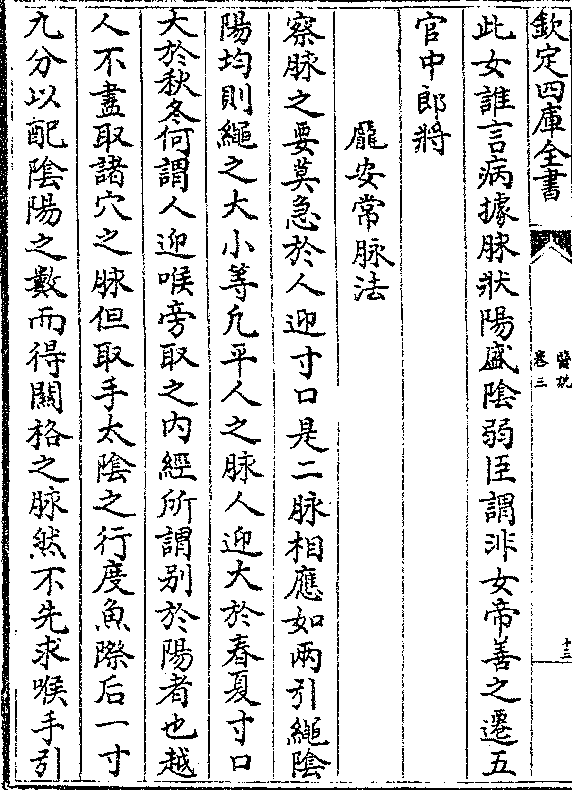 欽定四庫全書
醫說
卷三
十三
此女誰言病據脉狀陽盛陰弱臣謂非女帝善之遷五
官中郎將
龐安常脉法
察脉之要莫急於人迎寸口是二脉相應如兩引繩陰
陽均則繩之大小等凢平人之脉人迎大於春夏寸口
大於秋冬何謂人迎喉旁取之内經所謂别於陽者也越
人不盡取諸穴之脉但取手太陰之行度魚際后一寸
九分以配陰陽之數而得關格之脉然不先求喉手引